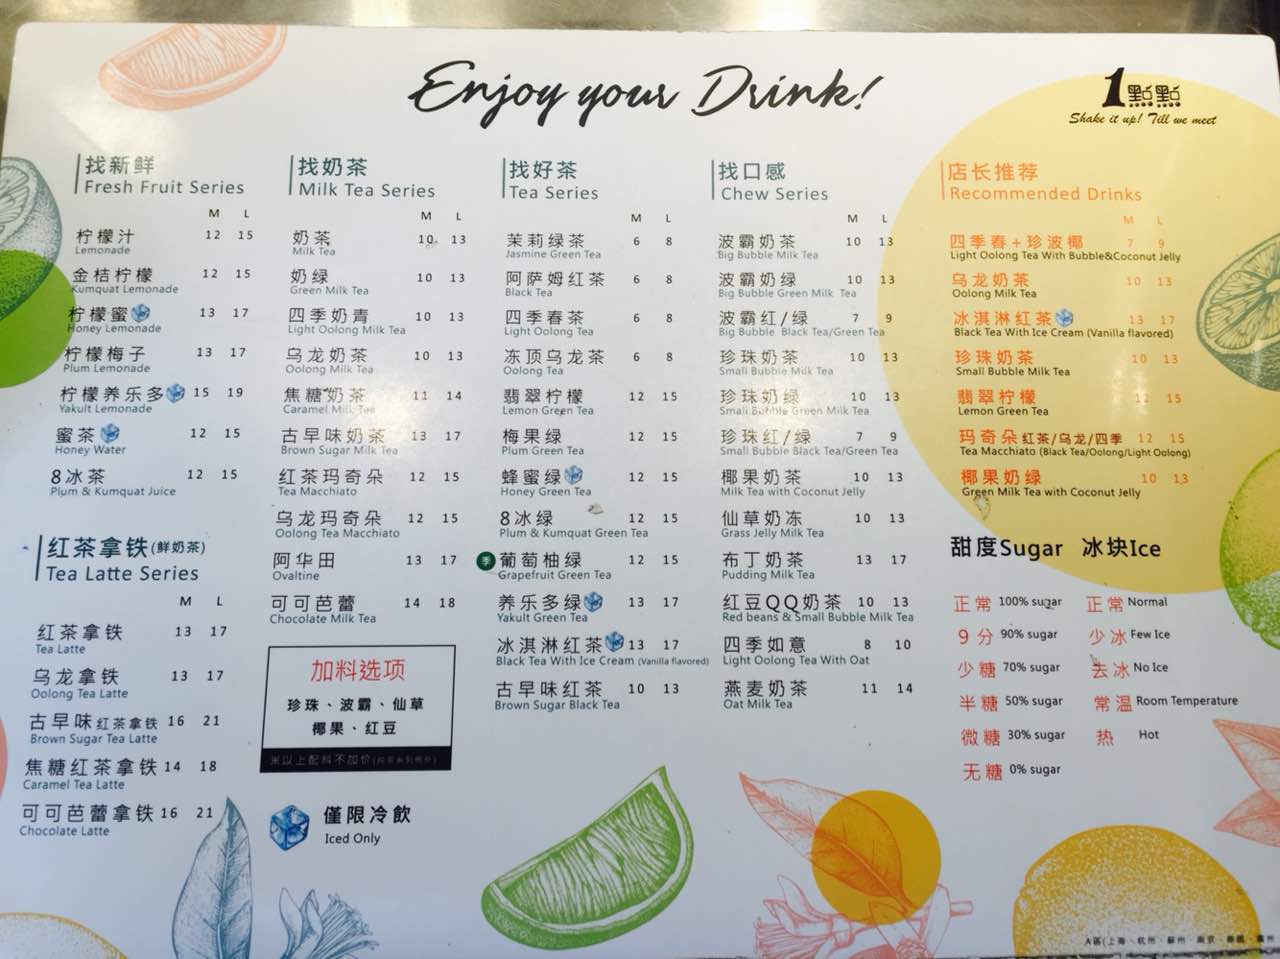 Enjoy your Drink!
1點點
Shake it up! Till we meet
找新鲜
Fresh Fruit Series
M L
柠檬汁 12 15
Lemonade
金桔柠檬 12 15
Kumquat Lemonade
柠檬蜜 13 17
Honey Lemonade
柠檬梅子 13 17
Plum Lemonade
柠檬养乐多 15 19
Yakult Lemonade
蜜茶 12 15
Honey Water
8冰茶 12 15
Plum & Kumquat Juice
红茶拿铁(鲜奶茶)
Tea Latte Series
M L
红茶拿铁 13 17
Tea Latte
乌龙拿铁 13 17
Oolong Tea Latte
古早味红茶拿铁 16 21
Brown Sugar Tea Latte
焦糖红茶拿铁 14 18
Caramel Tea Latte
可可芭蕾拿铁 16 21
Chocolate Latte
找奶茶
Milk Tea Series
M L
奶茶 10 13
Milk Tea
奶绿 10 13
Green Milk Tea
四季奶青 10 13
Light Oolong Milk Tea
乌龙奶茶 10 13
Oolong Milk Tea
焦糖奶茶 11 14
Caramel Milk Tea
古早味奶茶 13 17
Brown Sugar Milk Tea
红茶玛奇朵 12 15
Tea Macchiato
乌龙玛奇朵 12 15
Oolong Tea Macchiato
阿华田 13 17
Ovaltine
可可芭蕾 14 18
Chocolate Milk Tea
加料选项
珍珠、波霸、仙草
椰果、红豆
米以上配料不加价
僅限冷飲
Iced Only
找好茶
Tea Series
M L
茉莉绿茶 6 8
Jasmine Green Tea
阿萨姆红茶 6 8
Black Tea
四季春茶 6 8
Light Oolong Tea
冻顶乌龙茶 6 8
Oolong Tea
翡翠柠檬 12 15
Lemon Green Tea
梅果绿 12 15
Plum Green Tea
蜂蜜绿 12 15
Honey Green Tea
8冰绿 12 15
Plum & Kumquat Green Tea
季 葡萄柚绿 12 15
Grapefruit Green Tea
养乐多绿 13 17
Yakult Green Tea
冰淇淋红茶 13 17
Black Tea With Ice Cream (Vanilla flavored)
古早味红茶 10 13
Brown Sugar Black Tea
找口感
Chew Series
M L
波霸奶茶 10 13
Big Bubble Milk Tea
波霸奶绿 10 13
Big Bubble Green Milk Tea
波霸红/绿 7 9
Big Bubble Black Tea/Green Tea
珍珠奶茶 10 13
Small Bubble Milk Tea
珍珠奶绿 10 13
Small Bubble Green Milk Tea
珍珠红/绿 7 9
Small Bubble Black Tea/Green Tea
椰果奶茶 10 13
Milk Tea with Coconut Jelly
仙草奶冻 10 13
Grass Jelly Milk Tea
布丁奶茶 13 17
Pudding Milk Tea
红豆QQ奶茶 10 13
Red beans & Small Bubble Milk Tea
四季如意 8 10
Light Oolong Tea With Oat
燕麦奶茶 11 14
Oat Milk Tea
店长推荐
Recommended Drinks
M L
四季春+珍波椰 7 9
Light Oolong Tea With Bubble&Coconut Jelly
乌龙奶茶 10 13
Oolong Milk Tea
冰淇淋红茶 13 17
Black Tea With Ice Cream (Vanilla flavored)
珍珠奶茶 10 13
Small Bubble Milk Tea
翡翠柠檬 12 15
Lemon Green Tea
玛奇朵红茶/乌龙/四季 12 15
Tea Macchiato (Black Tea/Oolong/Light Oolong)
椰果奶绿 10 13
Green Milk Tea with Coconut Jelly
甜度Sugar 冰块Ice
正常 100% sugar 正常 Normal
9分 90% sugar 少冰 Few Ice
少糖 70% sugar 去冰 No Ice
半糖 50% sugar 常温 Room Temperature
微糖 30% sugar 热 Hot
无糖 0% sugar
A區(上海、杭州、蘇州、南京、